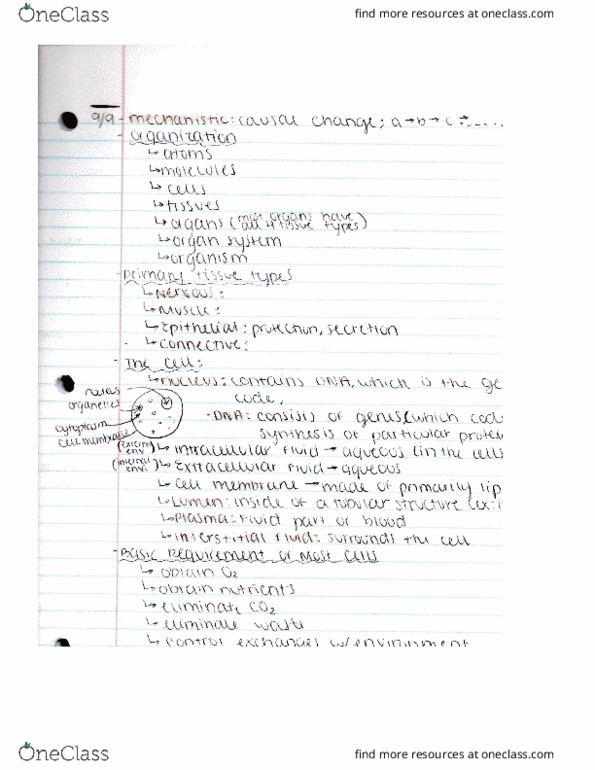 OneClass
find more resources at oneclass.com
9/9 - mechanistic: causal change; a→b→c→.....
- organization
↳ atoms
↳ molecules
↳ cells
↳ tissues
↳ organs (most organs have all 4 tissue types)
↳ organ system
↳ organism
- Primary tissue types
↳ Nervous:
↳ Muscle:
↳ Epithelial: protection, secretion
- ↳ connective:
- The cell:
↳ nucleus: contains DNA, which is the ge
code,
nucleus
organelles
cytoplasm
cell membrane
- DNA: consists of genes (which cod
synthesis of particular protei
(existing env) ↳ intracellular fluid → aqueous (in the cells
(internal env) ↳ Extracellular fluid → aqueous
↳ cell membrane → made of primarily lip
↳ Lumen: inside of a tubular structure (ex: i
↳ Plasma: fluid part of blood
↳ interstitial fluid: surrounds the cell
- Basic Requirement of Most cells
↳ obtain O2
↳ obtain nutrients
↳ eliminate CO2
↳ eliminate waste
↳ control exchanges w/environment
OneClass
find more resources at oneclass.com